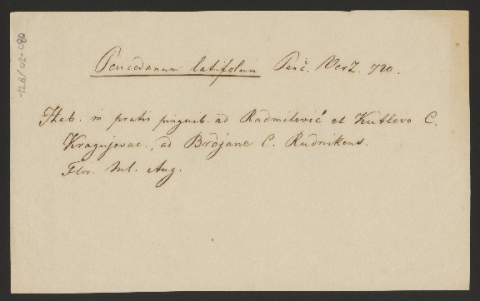 Peucedanum latifolium Panč. Verz. 720.
Hab. in pratis pinguib. ad Radmilović et Kutlovo C.
Kragujevac., ad Brdjane C. Rudnikens.
Flor. Jul. Aug.